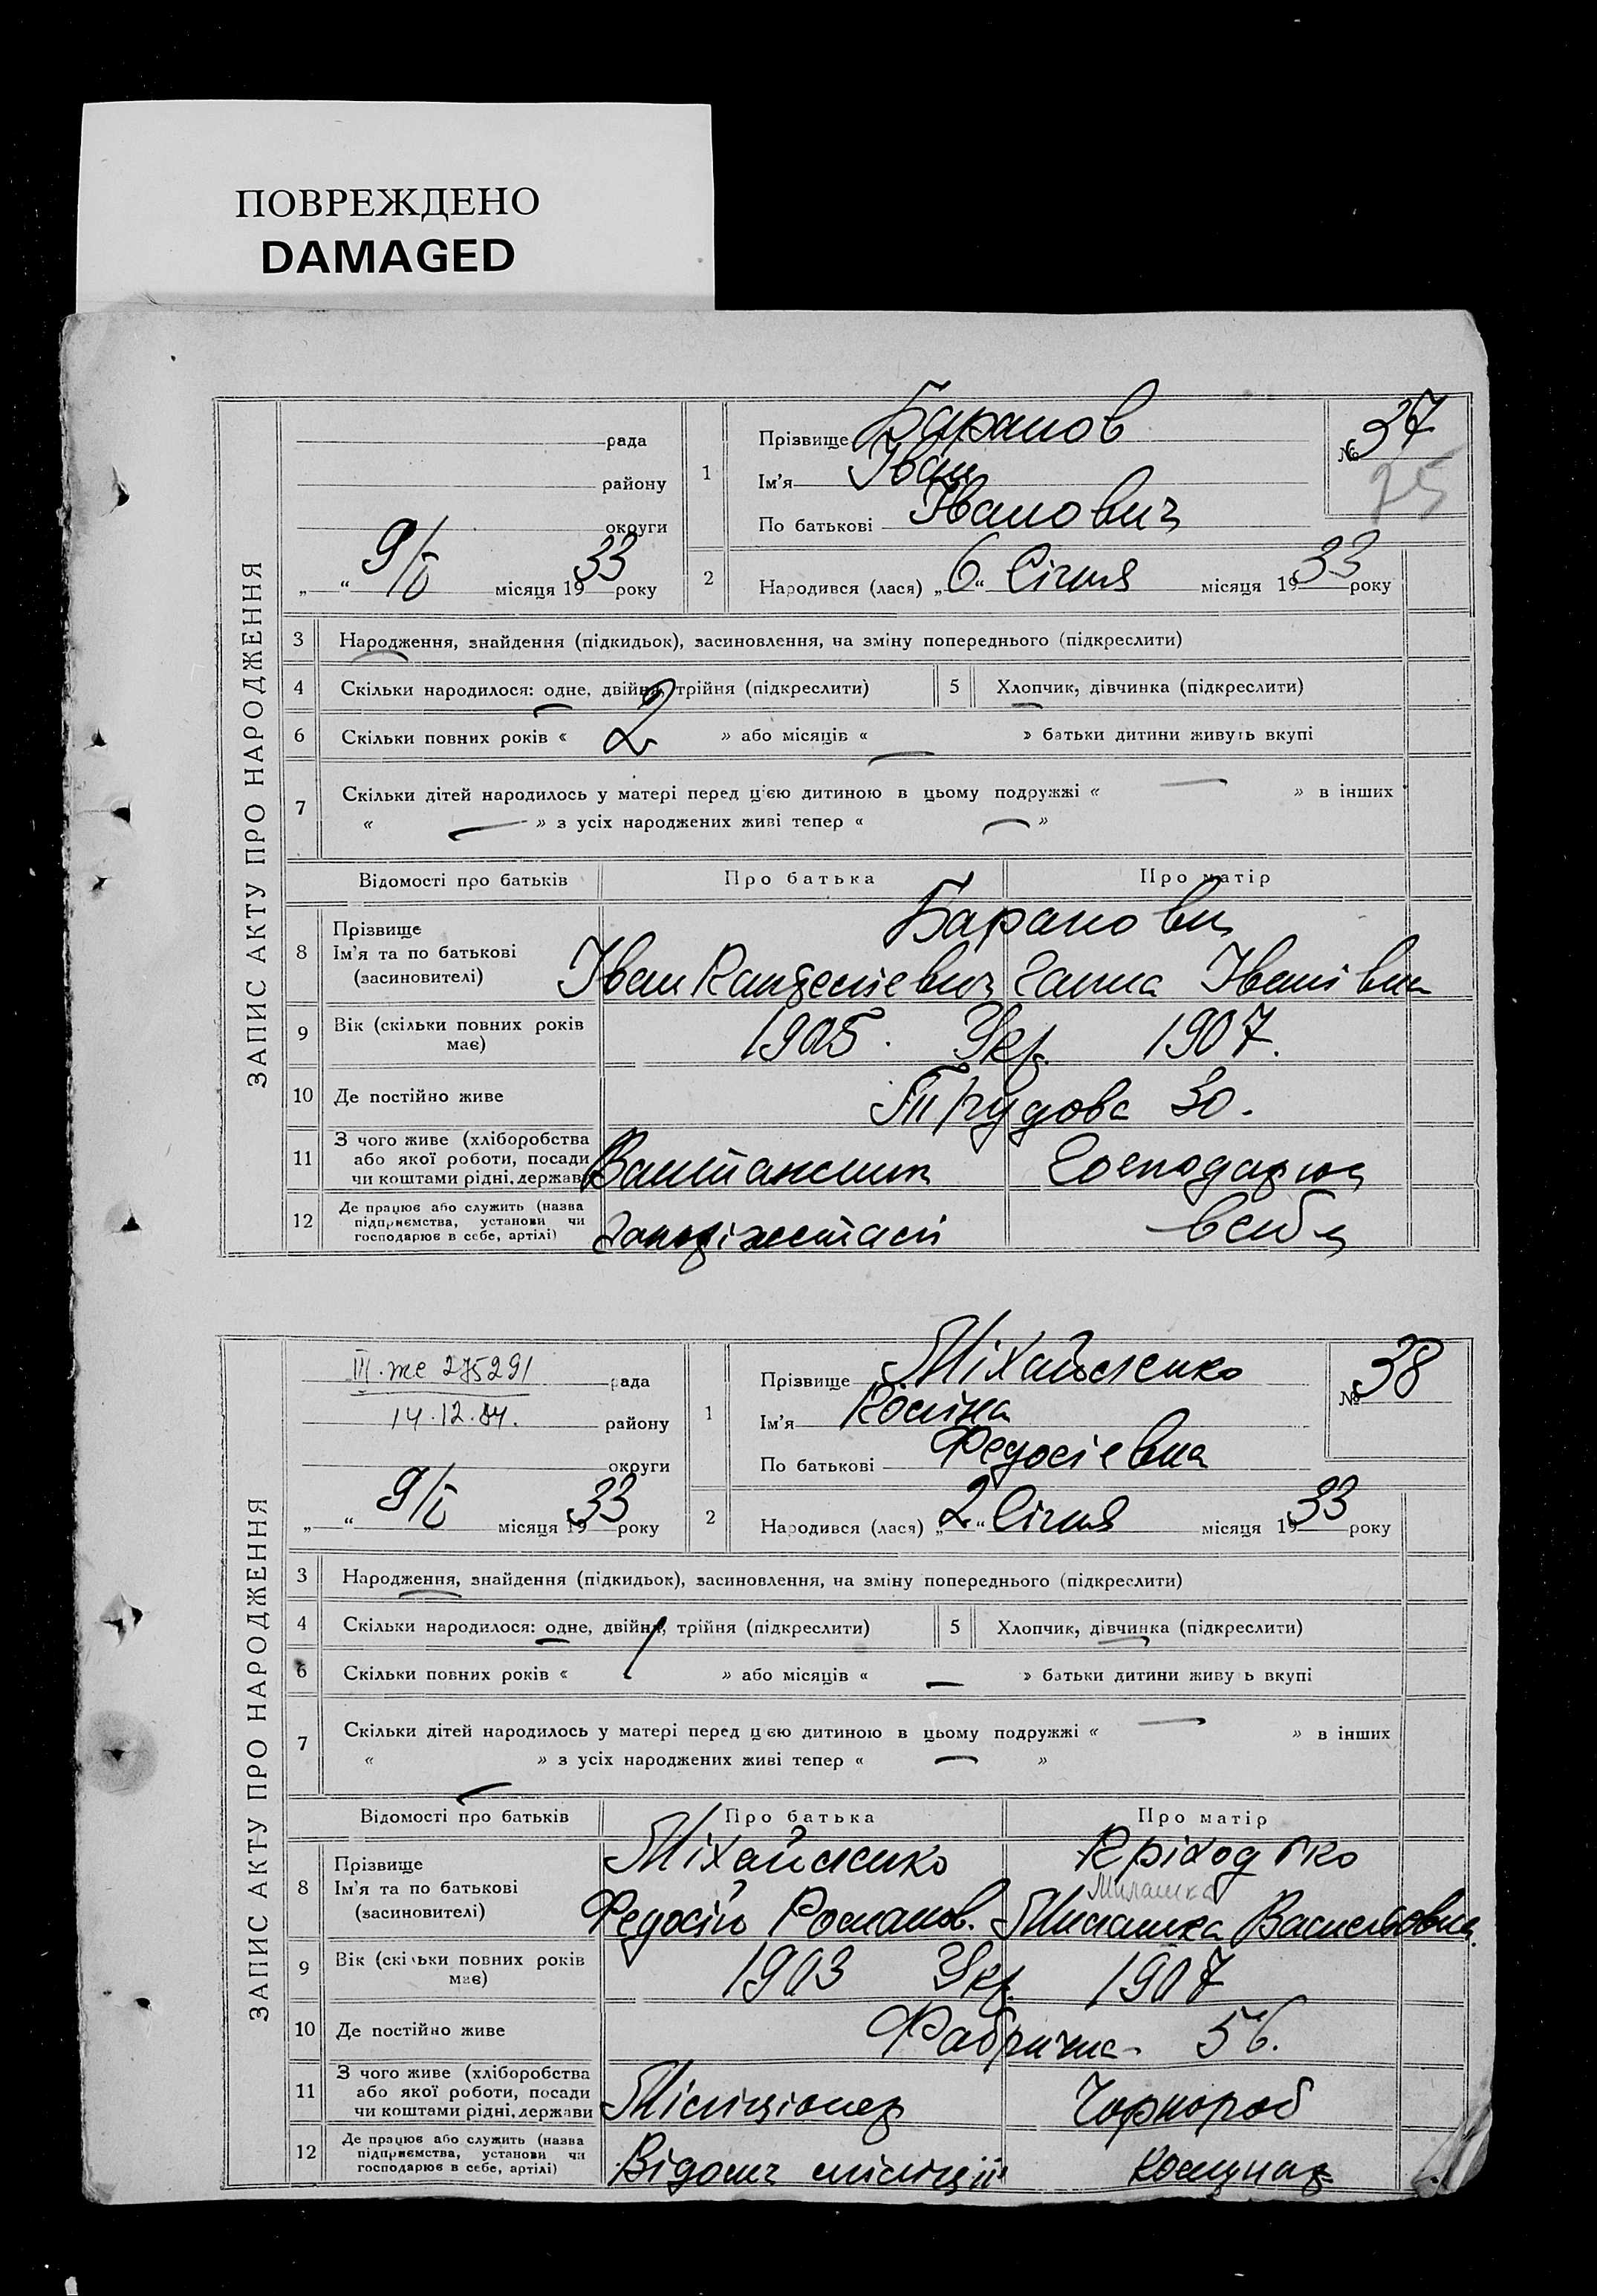 ПОВРЕЖДЕНО
DAMAGED
ЗАПИС АКТУ ПРО НАРОДЖЕННЯ
рада
району
округи
„ “ 9/I місяця 1933 року
1
Прізвище Баранов
Ім'я Іван
По батькові Іванович
№ 37
25
2 Народився (лася) „6“ Січня місяця 1933 року
3 Народження, знайдення (підкидьок), засиновлення, на зміну попереднього (підкреслити)
4 Скільки народилося: одне, двійня, трійня (підкреслити) 5 Хлопчик, дівчинка (підкреслити)
6 Скільки повних років « 2 » або місяців « — » батьки дитини живуть вкупі
7 Скільки дітей народилось у матері перед цією дитиною в цьому подружжі « — » в інших
« — » з усіх народжених живі тепер « — »
Відомості про батьків Про батька Про матір
8 Прізвище
Ім'я та по батькові
(засиновителі)
Баранови
Іван Ганна Іванівна
9 Вік (скільки повних років має) 1905. Укр. 1907.
10 Де постійно живе Трудова 30.
11 З чого живе (хліборобства
або якої роботи, посади
чи коштами рідні, держави
Вантажник Господарює
12 Де працює або служить (назва
підприємства, установи чи
господарює в себе, артілі)
в себе
ЗАПИС АКТУ ПРО НАРОДЖЕННЯ
III. же 275291 рада
14.12.84. району
округи
„ “ 9/I місяця 1933 року
1
Прізвище Міхайленко
Ім'я
По батькові Федосіевна
№ 38
2 Народився (лася) „2“ Січня місяця 1933 року
3 Народження, знайдення (підкидьок), засиновлення, на зміну попереднього (підкреслити)
4 Скільки народилося: одне, двійня, трійня (підкреслити) 5 Хлопчик, дівчинка (підкреслити)
6 Скільки повних років « 1 » або місяців « — » батьки дитини живуть вкупі
7 Скільки дітей народилось у матері перед цією дитиною в цьому подружжі « — » в інших
« — » з усіх народжених живі тепер « — »
Відомості про батьків Про батька Про матір
8 Прізвище
Ім'я та по батькові
(засиновителі)
Міхайленко Пріходько
Милашка
Федосій Роман. Милашка Васильовна
9 Вік (скільки повних років має) 1903 Укр. 1907
10 Де постійно живе Фабрична 56.
11 З чого живе (хліборобства
або якої роботи, посади
чи коштами рідні, держави
Міліціонер Чорнороб
12 Де працює або служить (назва
підприємства, установи чи
господарює в себе, артілі)
міліції Комунар